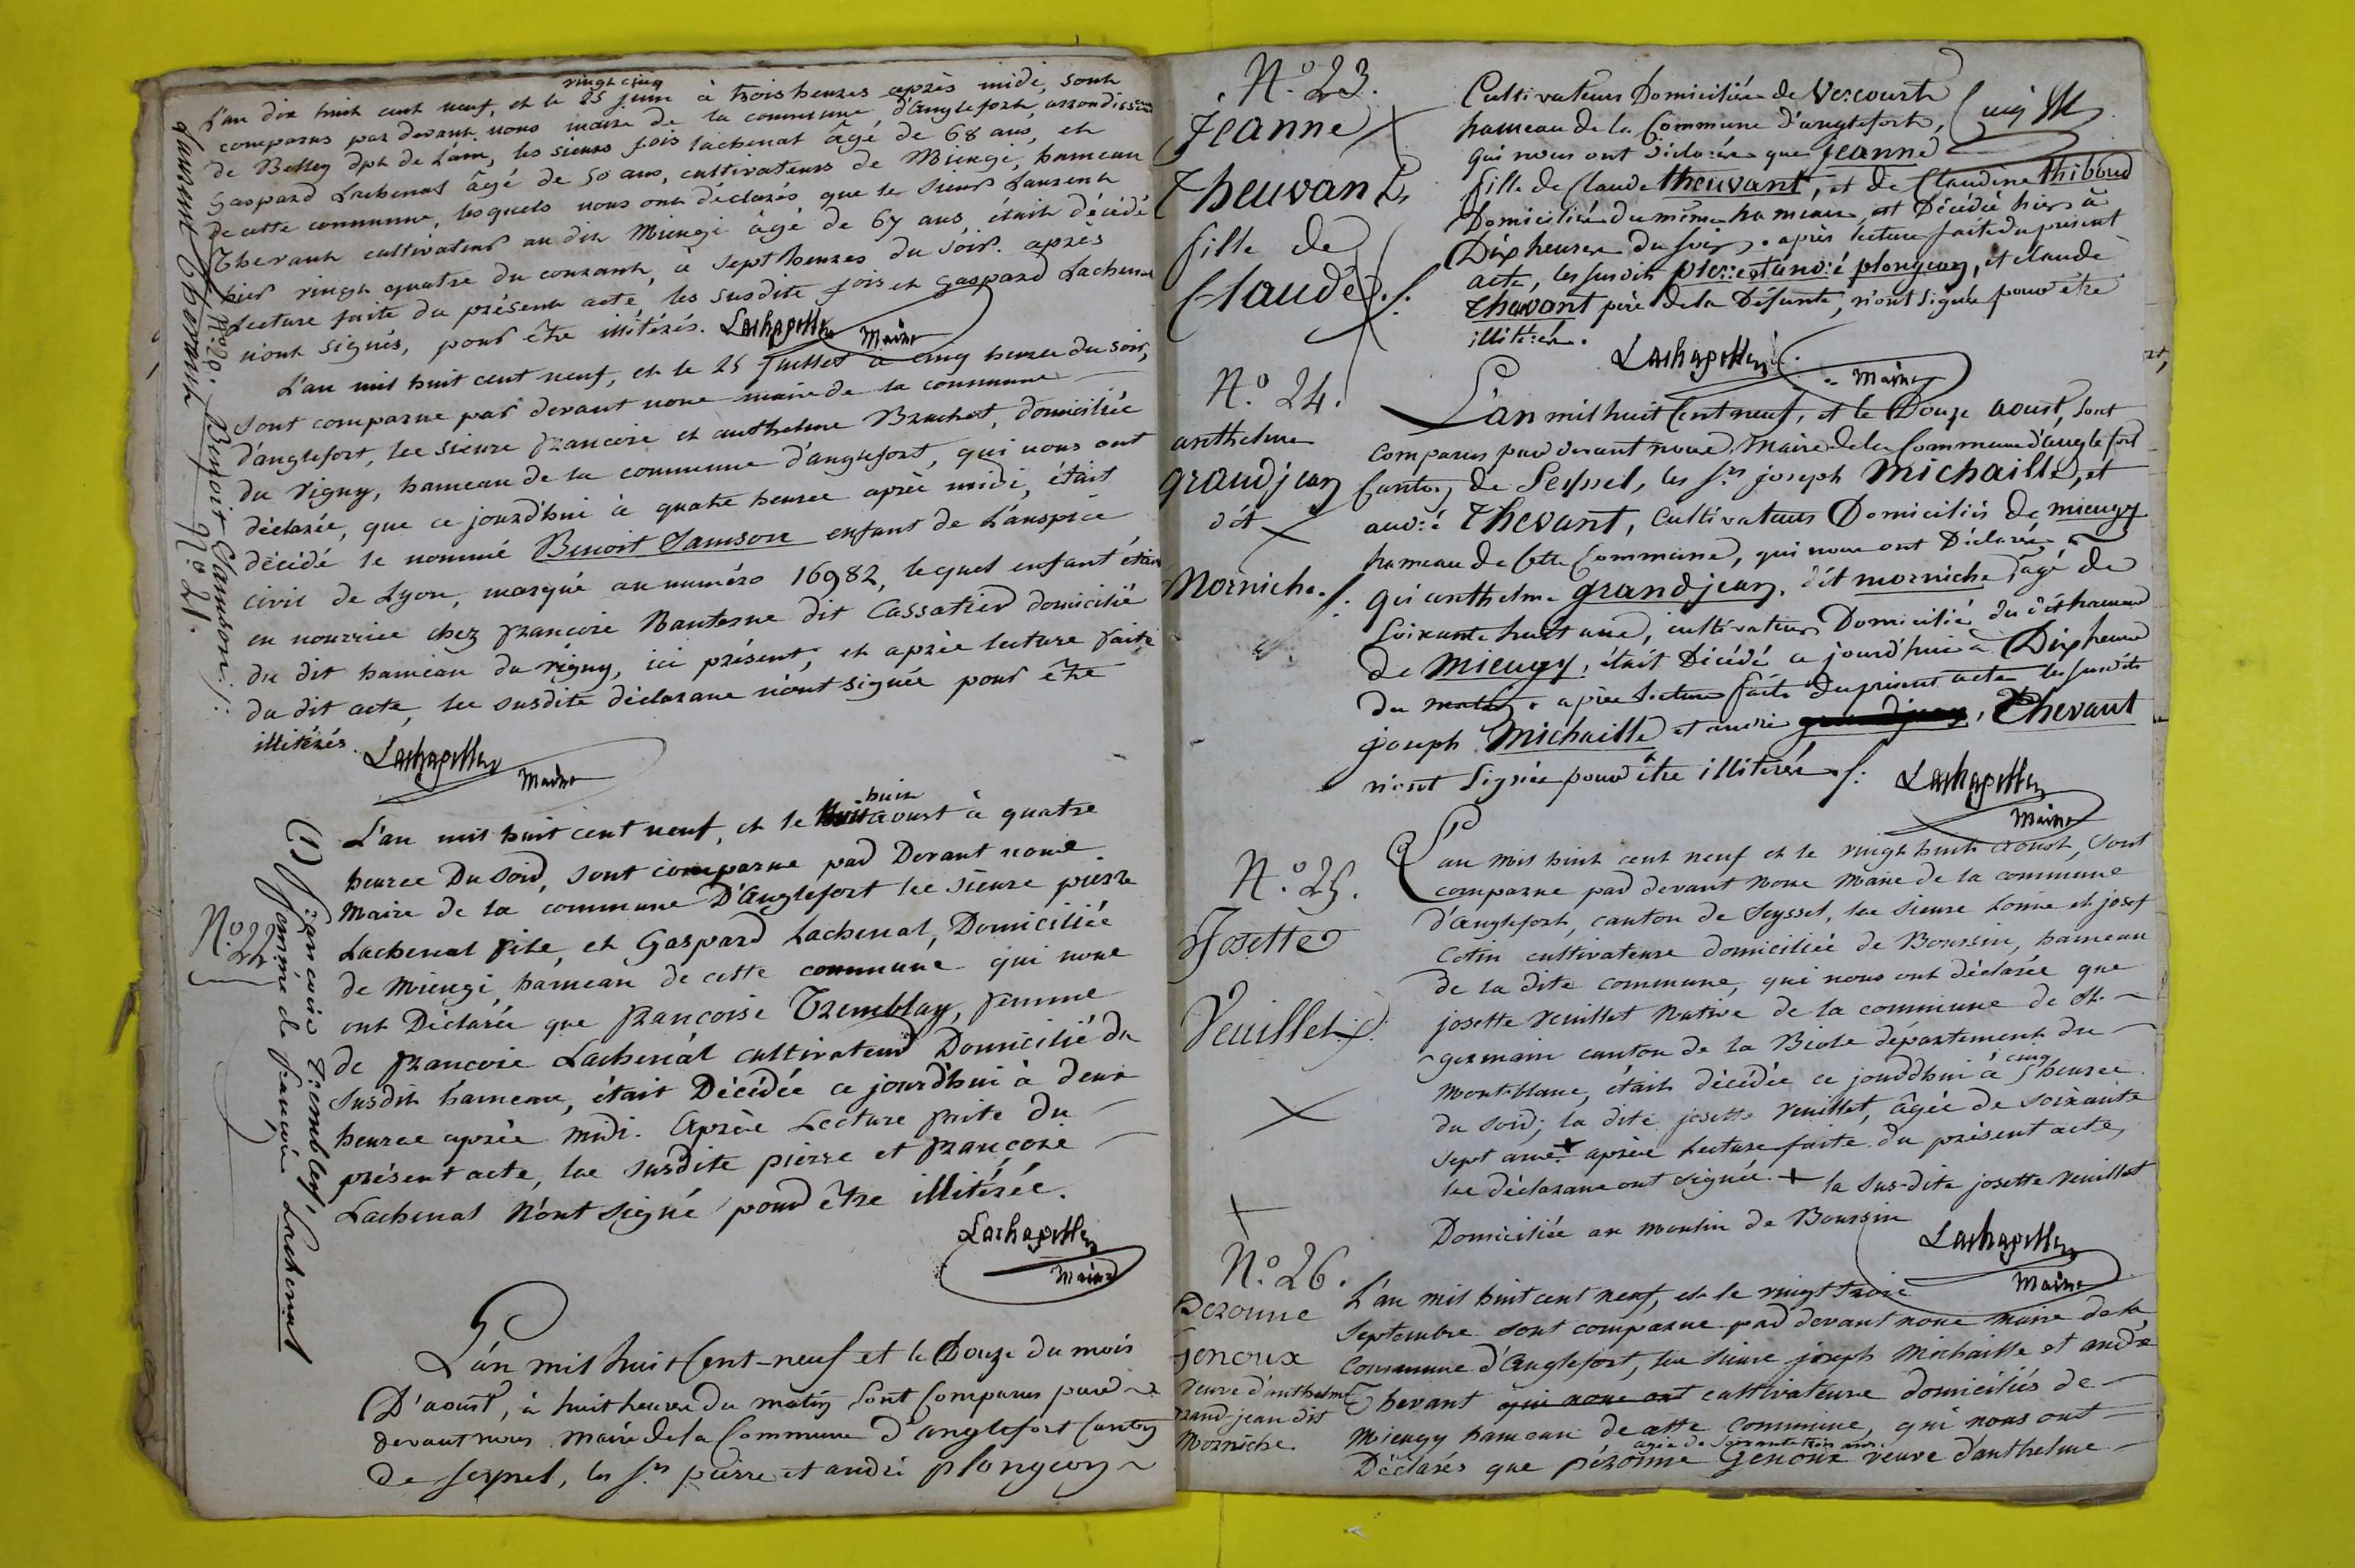 L'an dix huit cent neuf, et le vingt cinq 25 juin à trois heures après midi, sont
comparus par devant nous maire de la commune d'anglefort, arrondissem
de Belley dpt de L'ain, les sieurs fois lachenal âgé de 68 ans, et
Gaspard Lachenal âgé de 50 ans, cultivateurs de Miengi, hameau
de cette commune, lesquels nous ont déclarés, que le sieur Laurent
Thevant cultivateur au dit Miengi âgé de 67 ans était décédé
hier vingt quatre du courant, à sept heures du soir. après
lecture faite du présent acte, les susdits fois et Gaspard Lachenal
n'ont signés, pour être illitérés. Lachapelle Maire
Laurent Thevant N.º 20.
L'an mil huit cent neuf, et le 25 juillet à cinq heures du soir,
sont comparus par devant nous maire de la commune
d'anglefort, les sieurs francois et anthelme Brachet, domiciliés
du rigny, hameau de la commune d'anglefort, qui nous ont
déclarés, que ce jourd'hui à quatre heures après midi, était
décédé le nommé Benoit Samson enfant de L'auspice
civil de Lyon, marqué au numéro 16982, lequel enfant était
en nourrice chez francois Nanterne dit Cassatier domicilié
du dit hameau du rigny, ici présent, et après lecture faite
du dit acte, les susdits déclarans n'ont signés pour être
illitérés. Lachapelle Maire
Benoit Samson N.º 21.
L'an mil huit cent neuf, et le huit aoust à quatre
heures Du Soir, sont comparus par Devant nous
Maire de la commune D'anglefort les sieurs pierre
Lachenal file, et Gaspard Lachenal, Domiciliés
de Miengi, hameau de cette commune qui nous
ont Déclarés que francoise Tremblay, femme
de francois Lachenal cultivateur Domicilié du
susdit hameau, était Décédée ce jourd'hui à deux
heures après midi. Après Lecture faite du
présent acte, les susdits pierre et francois
Lachenal N'ont signé pour être illitérés.
Lachapelle
Maire
N.º 22
(1) francoise Trembley,
femme de francois Lachenal
L'an mil huit Cent-neuf et le Douze du mois
D'aoust, à huit heures du matin sont Comparus par
devant nous Maire de la Commune d'anglefort Canton
de seyssel, les S.rs pierre et andré plongeon
N.º 23.
Jeanne
Theuvant
fille de
Claude
Cultivateurs Domiciliés de Vercourt
hameau de la Commune d'anglefort,
qui nous ont déclarés que Jeanne
fille de Claude theuvant, et de Claudine thiboud
Domiciliés du même hameau est Décédée hier à
Dix heures du soir. après lecture faite du présent
acte, les susdits pierre et andré plongeon, et claude
thevant père de la Défunte, n'ont signés pour être
illitérés.
Lachapelle Maire
N.º 24.
anthelme
grandjean
dit
Morniche
L'an mil huit Cent neuf, et le Douze aoust, sont
Comparus par devant nous Maire de la Commune d'anglefort
Canton de Seyssel, les S.rs joseph Michaille, et
andré Thevant, Cultivateurs Domiciliés de miengy
hameau de Cette Commune, qui nous ont Déclarés
qui anthelme grandjean, dit morniche âgé de
soixante huit ans, cultivateur Domicilié du dit hameau
de miengy, était Décédé ce jourd'hui à Dix heures
du matin. après lecture faite du présent acte les susdits
joseph Michaille et andré grandjean, Thevant
n'ont signés pour être illitérés. Lachapelle
Maire
N.º 25.
Josette
Veuillet
L'an mil huit cent neuf et le vingt huit aoust, sont
comparus par devant Nous Maire de la commune
d'Anglefort, canton de Seyssel, les sieurs Louis et josef
Cotin cultivateurs domiciliés de Boursin, hameau
de la dite commune, qui nous ont déclarés que
josette veuillet Native de la commune de St.
germain canton de la Biole département du
Mont-blanc, était décédée ce jourd'hui à cinq 5 heures
du soir; la dite josette veuillet, âgée de soixante
sept ans + après Lecture faite du présent acte,
les déclarans ont signés. + la sus-dite josette veuillet
Domiciliée au moulin de Boursin Lachapelle
Maire
N.º 26.
Pezonne
Genoux
veuve d'anthelme
grand-jean dit
Morniche.
L'an mil huit cent neuf, et le vingt trois
Septembre sont comparus par devant nous maire de la
Commune d'Anglefort, les sieurs joseph Michaille et andré
Thevant qui nous ont cultivateurs domiciliés de
Miengy hameau de cette Commune, qui nous ont
Déclarés que pézonne Genoux agée de soixante trois ans. veuve d'anthelme